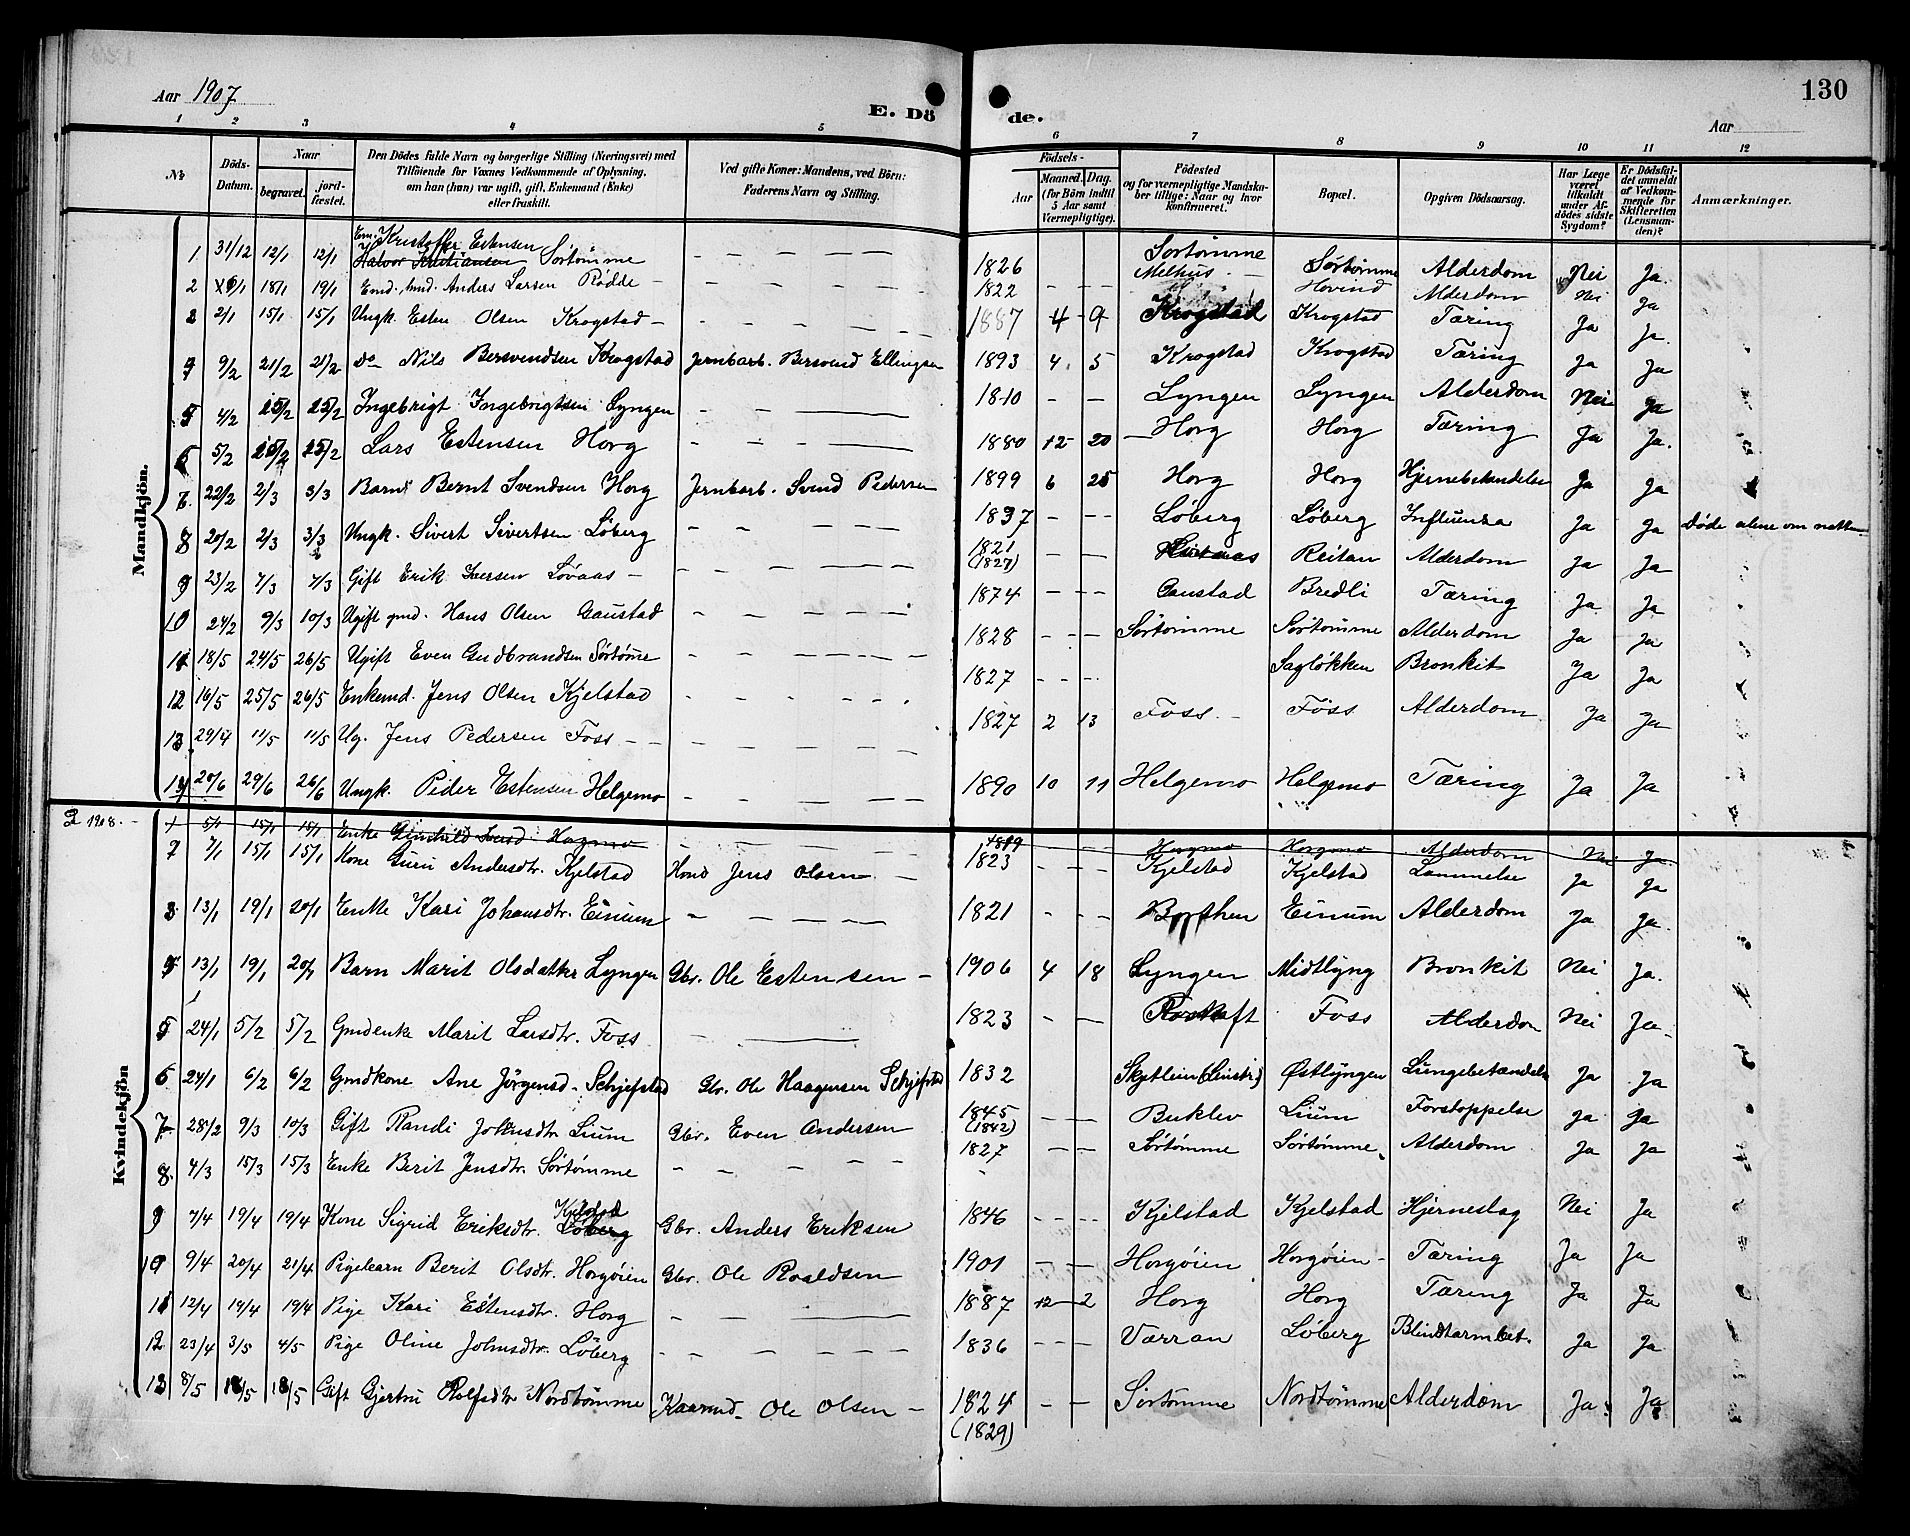 130
Aar 1907
E. Dö de.
Aar
1 2 3 4 5 6 7 8 9 10 11 12
No Döds-Datum. Naar begravet. jordfæstet. Den Dödes fulde Navn og borgerlige Stilling (Næringsvei) med Tilföiende for Voxnes Vedkommende af Oplysning, om han (hun) var ugift, gift, Enkemand (Enke) eller fraskilt. Ved gifte Koner: Mandens, ved Börn: Faderens Navn og Stilling. Födsels- Aar Maaned. Dag. (for Börn indtil 5 Aar samt Værnepligtige). Födested og for værnepligtige Mandskaber tillige: Naar og hvor konfirmeret. Bopæl. Opgiven Dödsaarsag. Har Læge været tilkaldt under Afdödes sidste Sygdom? Er Dödsfaldet anmeldt af Vedkommende for Skifteretten (Lensmanden)? Anmærkninger.
Mandkjön.
1 31/12 12/1 12/1 Em. Kristoffer Estensen Halvor Kristiansen Sörtömme - - - 1826 Sortömme Sörtömme Alderdom Nei Ja.
2 1/1 18/1 19/1 Emd. hmd. Anders Larsen Rødde - 1822 - - Melhus - Hovind Alderdom Nei Ja
3 2/1 15/1 15/1 Ungk. Esten Olsen Krogstad - - - 1887 4 9 Krogstad Krogstad Tæring Ja Ja.
4 9/2 21/2 21/2 Do Nils Bersvendsen Krogstad Jernbarb. Bersvend Ellingsen 1893 4 5 Krogstad Krogstad Tæring Ja Ja
5 4/2 25/2 25/2 Ingebrigt Ingebrigtsen Lyngen - - - 1810 - - Lyngen Lyngen Alderdom Nei Ja
6 5/2 25/2 25/2 Lars Estensen Horg - - - 1880 12 20 Horg Horg Tæring Ja Ja.
7. 22/2 2/3 3/3 Barn Bernt Svendsen Horg Jernbarb. Svend Pedersen 1899 6 25 Horg Horg Hjernebetændelse Ja Ja
8 20/2 2/3 3/3 Ungk. Sivert Sivertsen Löberg - - - 1837 - - Löberg Löberg Influenza Ja Ja Döde alene om natten
9 23/2 7/3 7/3 Gift Erik Iversen Lövaas - - - 1821 (1827) - - Reitan Alderdom Ja Ja
10 24/2 9/3 10/3 Ugift gmd. Hans Olsen Gaustad - - - 1874 - - Gaustad Bredli Tæring Ja Ja
11 18/5 24/5 26/5 Ugift Even Gudbrandsen Sörtömme - - - 1828 - - Sörtömme Sörtömme Alderdom Ja Ja
12 16/5 25/5 26/5 Enkemd. Jens Olsen Kjelstad - - - 1827 - - Saglökken Bronkit Ja Ja
13 29/4 11/5 11/5 Ug. Jens Pedersen Foss - - - 1827 2 13 Foss - Foss Alderdom Ja Ja
14 20/6 29/6 26/6 Ungk. Peder Estensen Helgemo - - - 1890 10 11 Helgemo Helgemo Tæring Ja Ja
Kvindekjön
1908. - 1 5/1 15/1 15/1 Enke Gunhild Iversd Hagmo - - - 1819 Horgmo Horgmo Alderdom Nei Ja.
2 7/1 15/1 15/1 Kone Guru Andersdtr. Kjelstad Hmd Jens Olsen - 1823 - - Kjelstad Kjelstad Lammelse Ja Ja
3 13/1 19/1 20/1 Enke Kari Johansdtr. Einum - - - 1821 - - Borthen Einum Alderdom Ja Ja.
4 13/1 19/1 20/1 Barn Marit Olsdatter Lyngen Gbr. Ole Estensen - 1906 4 18 Lyngen Midtlyng Bronkit Nei Ja.
5 24/1 5/2 5/2 Gmdenke Marit Larsdtr. Foss - 1823 - - Foss Alderdom Nei Ja -
6 24/1 6/2 6/2 Gmdkone Ane Jörgensd. Schjefstad Gbr. Ole Haagensen Schjefstad 1832 Østlyngen Lungebetændelse Ja Ja
7 28/2 9/3 10/3 Gift Randi Johnsdtr Lium Gbr. Even Andersen 1845 (1842) - - Buklev Lium Forstoppelse Ja Ja
8. 4/3 15/3 15/3 Enke Berit Jensdtr. Sörtömme - - - 1827 - - Sörtömme Sörtömme Alderdom Ja Ja
9 7/4 19/4 19/4 Kone Sigrid Eriksdtr. Kjelstad Löberg Gbr. Anders Eriksen 1846 - - Kjelstad Kjelstad Hjerneslag Nei Ja
10 9/4 20/4 21/4 Pigebarn Berit Olsdtr. Horgöien Gbr. Ole Roaldsen 1901 - - Horgöien Horgöien - Tæring Ja Ja
11 12/4 19/4 19/4 Pige Kari Estensdtr. Horg - - - 1887 12 2 Horg Horg Tæring Ja Ja
12 23/4 3/5 4/5 Pige Oline Johnsdtr. Löberg - - - 1836 - - Værran Löberg Blindtarmbet. Ja Ja
13 8/5 18/5 18/5 Gift Gjertru Rolfsdtr Nordtömme Kaarmd. Ole Olsen - 1824 (1829) - - Sörtömme Nordtömme Alderdom Ja Ja